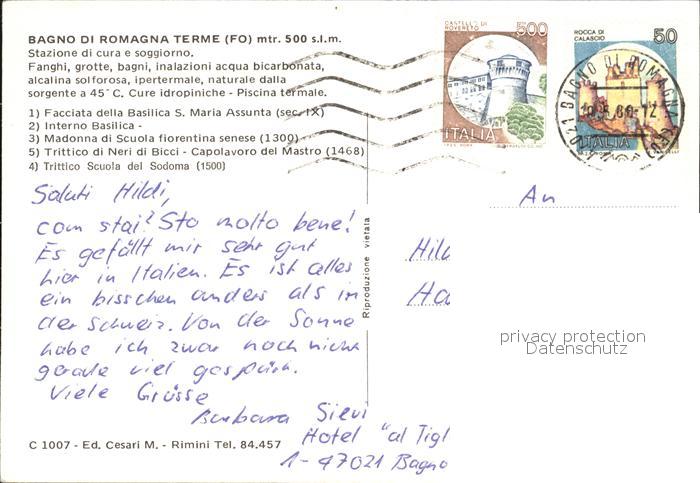 BAGNO DI ROMAGNA TERME (FO) mtr. 500 s.l.m.
Stazione di cura e soggiorno.
Fanghi, grotte, bagni, inalazioni acqua bicarbonata,
alcalina solforosa, ipertermale, naturale dalla
sorgente a 45° C. Cure idropiniche - Piscina termale.
1) Facciata della Basilica S. Maria Assunta (sec. IX)
2) Interno Basilica -
3) Madonna di Scuola fiorentina senese (1300)
5) Trittico di Neri di Bicci - Capolavoro del Mastro (1468)
4) Trittico Scuola del Sodoma (1500)
CASTELLO DI
ROVERETO
500
ITALIA
ROCCA DI
CALASCIO
50
ITALIA
BAGNO DI ROMAGNA
Saluti Hildi,
com stai? Sto molto bene!
Es gefällt mir sehr gut
hier in Italien. Es ist alles
ein bisschen anders als in
der Schweiz. Von der Sonne
habe ich zwar noch nicht
gerade viel gespürt.
Viele Grüsse
Barbara Sievi
Hotel "al Tigl
I-47021 Bagno
Riproduzione vietata
An
Hild
Ha
privacy protection
Datenschutz
C 1007 - Ed. Cesari M. - Rimini Tel. 84.457